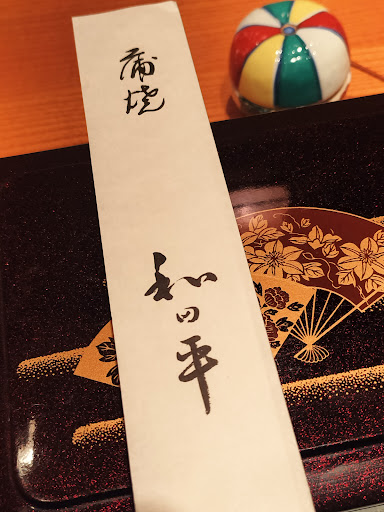 蒲焼
和田平